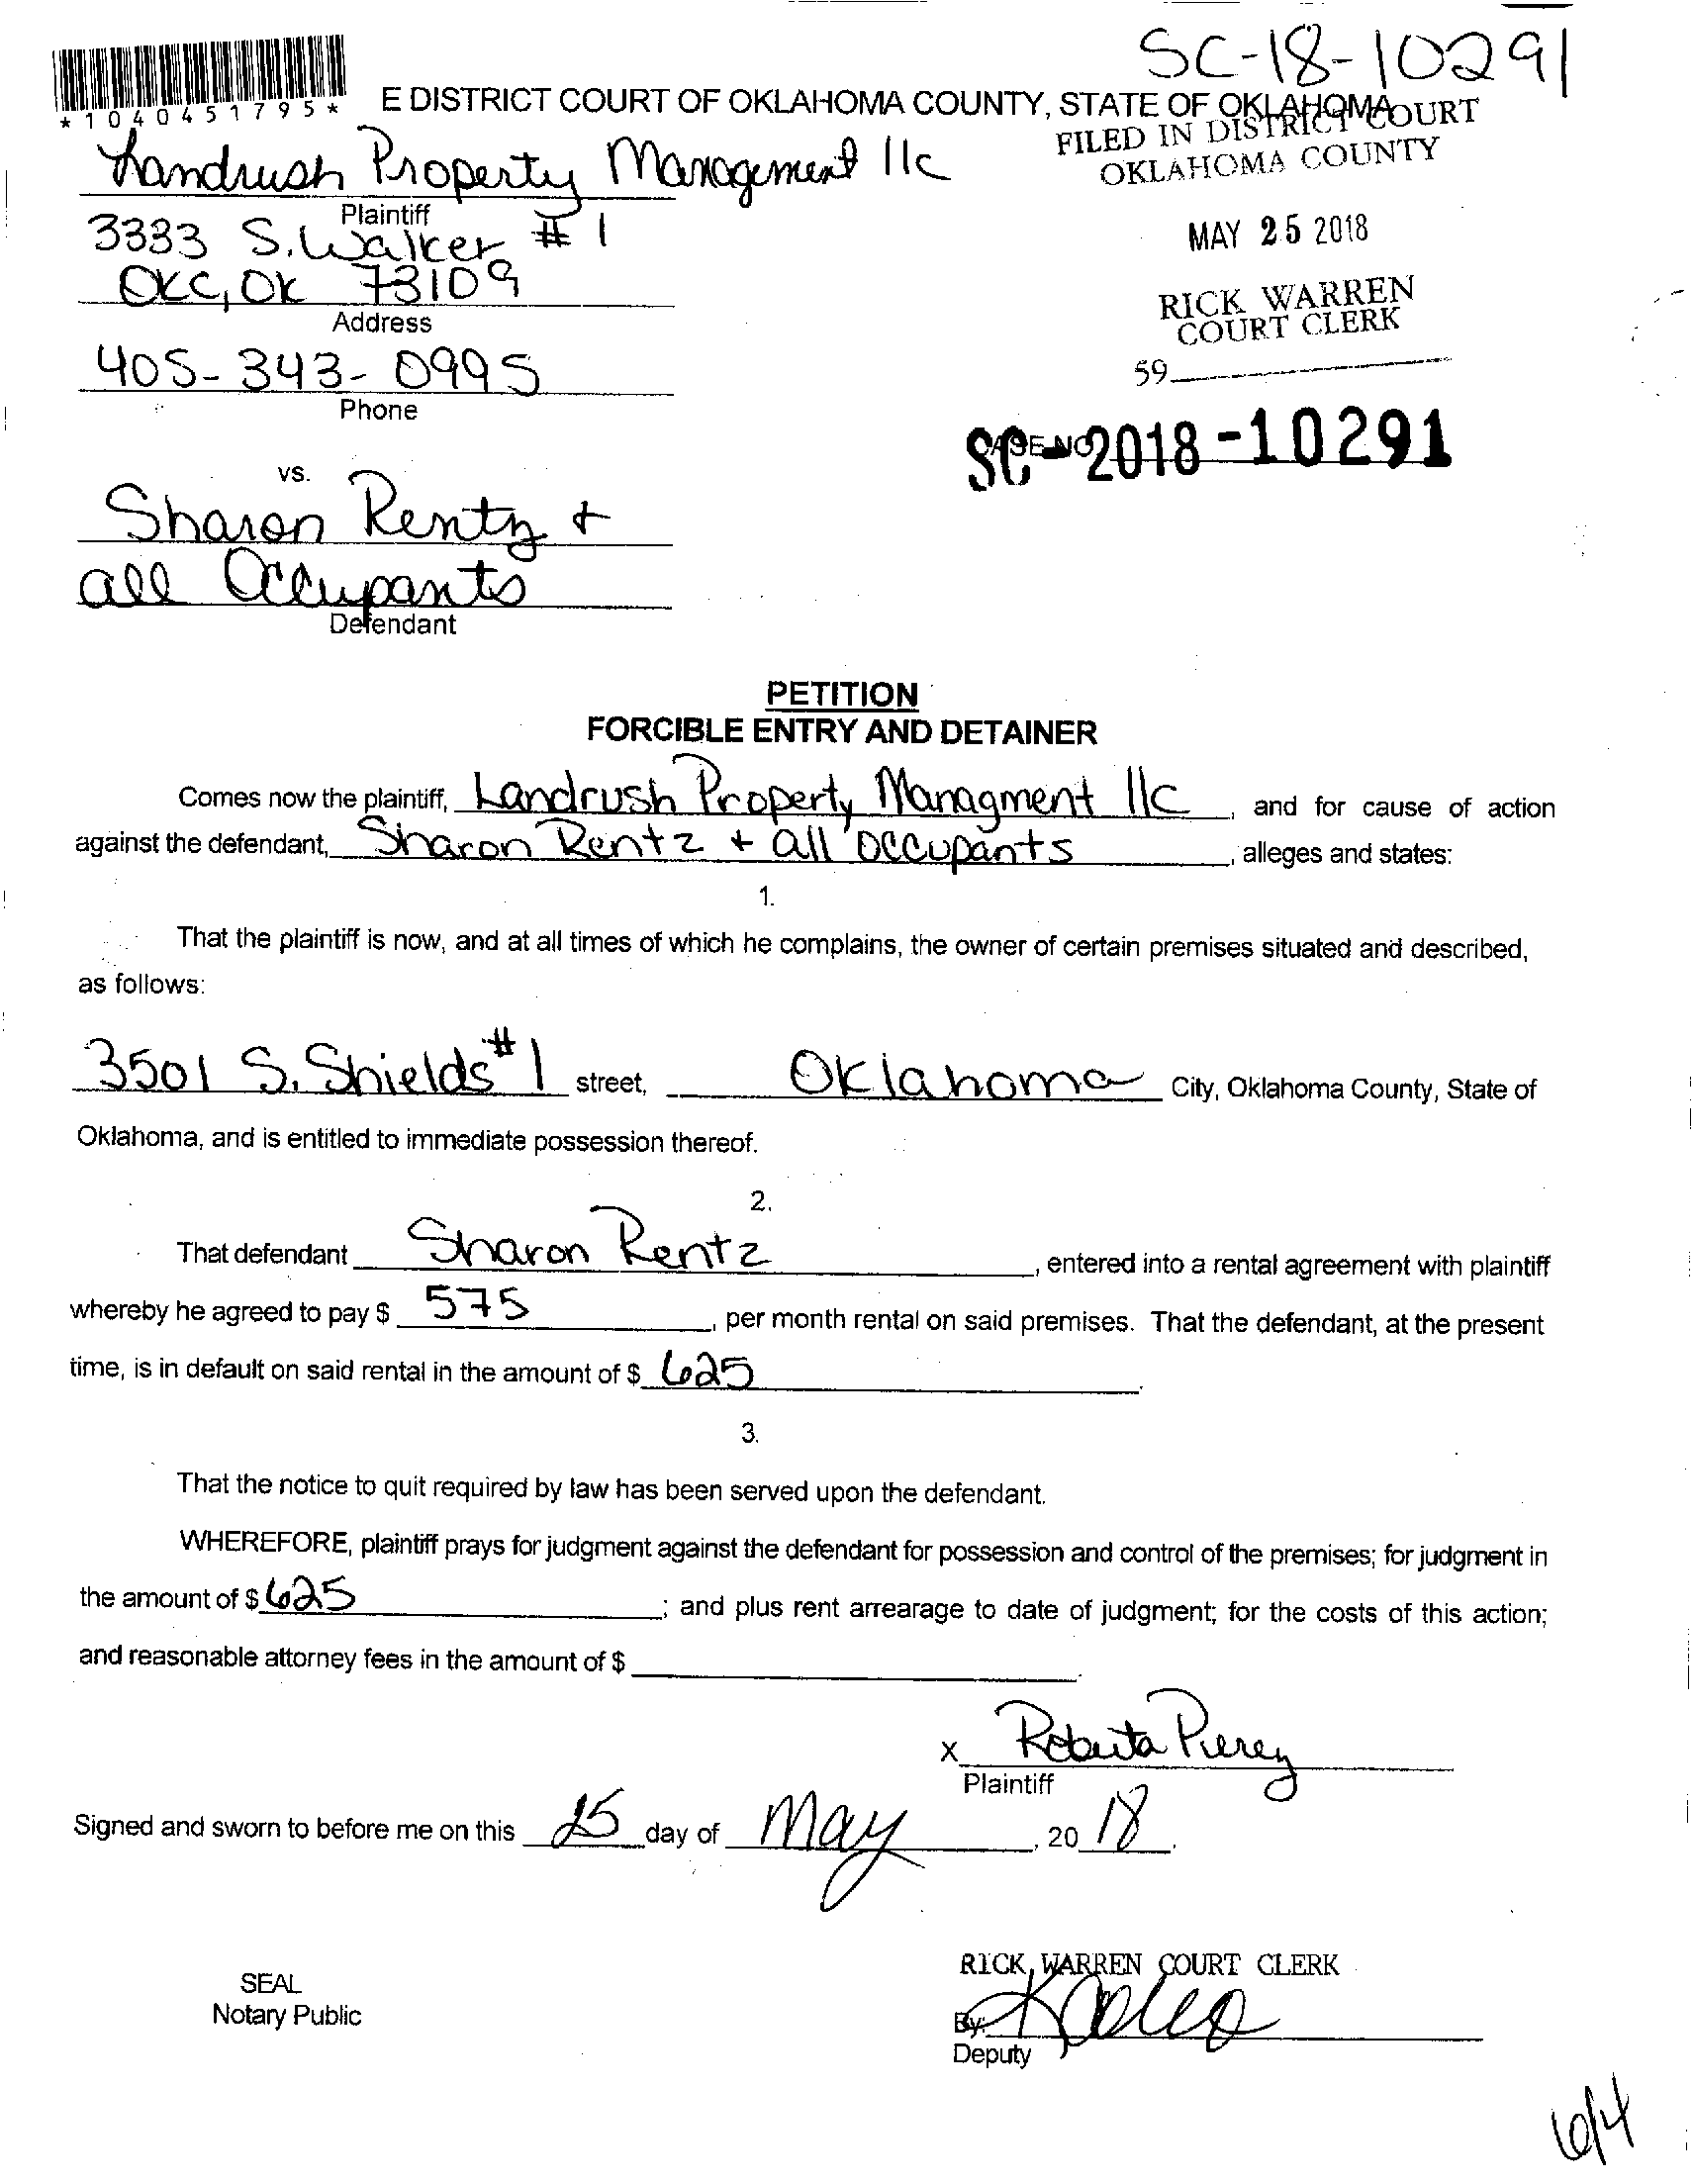 SC-18-10291
*1040451795*
E DISTRICT COURT OF OKLAHOMA COUNTY, STATE OF OKLAHOMA
FILED IN DISTRICT COURT
OKLAHOMA COUNTY
Landrush Property Management llc
Plaintiff
MAY 25 2018
3333 S. Walker #1
OKC, OK 73109
Address
RICK WARREN
COURT CLERK
405-343-0995
Phone
59
CASE NO
SC-2018-10291
vs.
Sharon Rentz +
all Occupants
Defendant
PETITION
FORCIBLE ENTRY AND DETAINER
Comes now the plaintiff, Landrush Property Managment llc, and for cause of action
against the defendant, Sharon Rentz + all occupants, alleges and states:
1.
That the plaintiff is now, and at all times of which he complains, the owner of certain premises situated and described,
as follows:
3501 S. Shields #1 street, Oklahoma City, Oklahoma County, State of
Oklahoma, and is entitled to immediate possession thereof.
2.
That defendant Sharon Rentz, entered into a rental agreement with plaintiff
whereby he agreed to pay $ 575, per month rental on said premises. That the defendant, at the present
time, is in default on said rental in the amount of $ 625.
3.
That the notice to quit required by law has been served upon the defendant.
WHEREFORE, plaintiff prays for judgment against the defendant for possession and control of the premises; for judgment in
the amount of $ 625; and plus rent arrearage to date of judgment; for the costs of this action;
and reasonable attorney fees in the amount of $ .
x Roberta Pierey
Plaintiff
Signed and sworn to before me on this 25 day of May, 20 18.
RICK WARREN COURT CLERK
SEAL
Notary Public
By:
Deputy
6/4